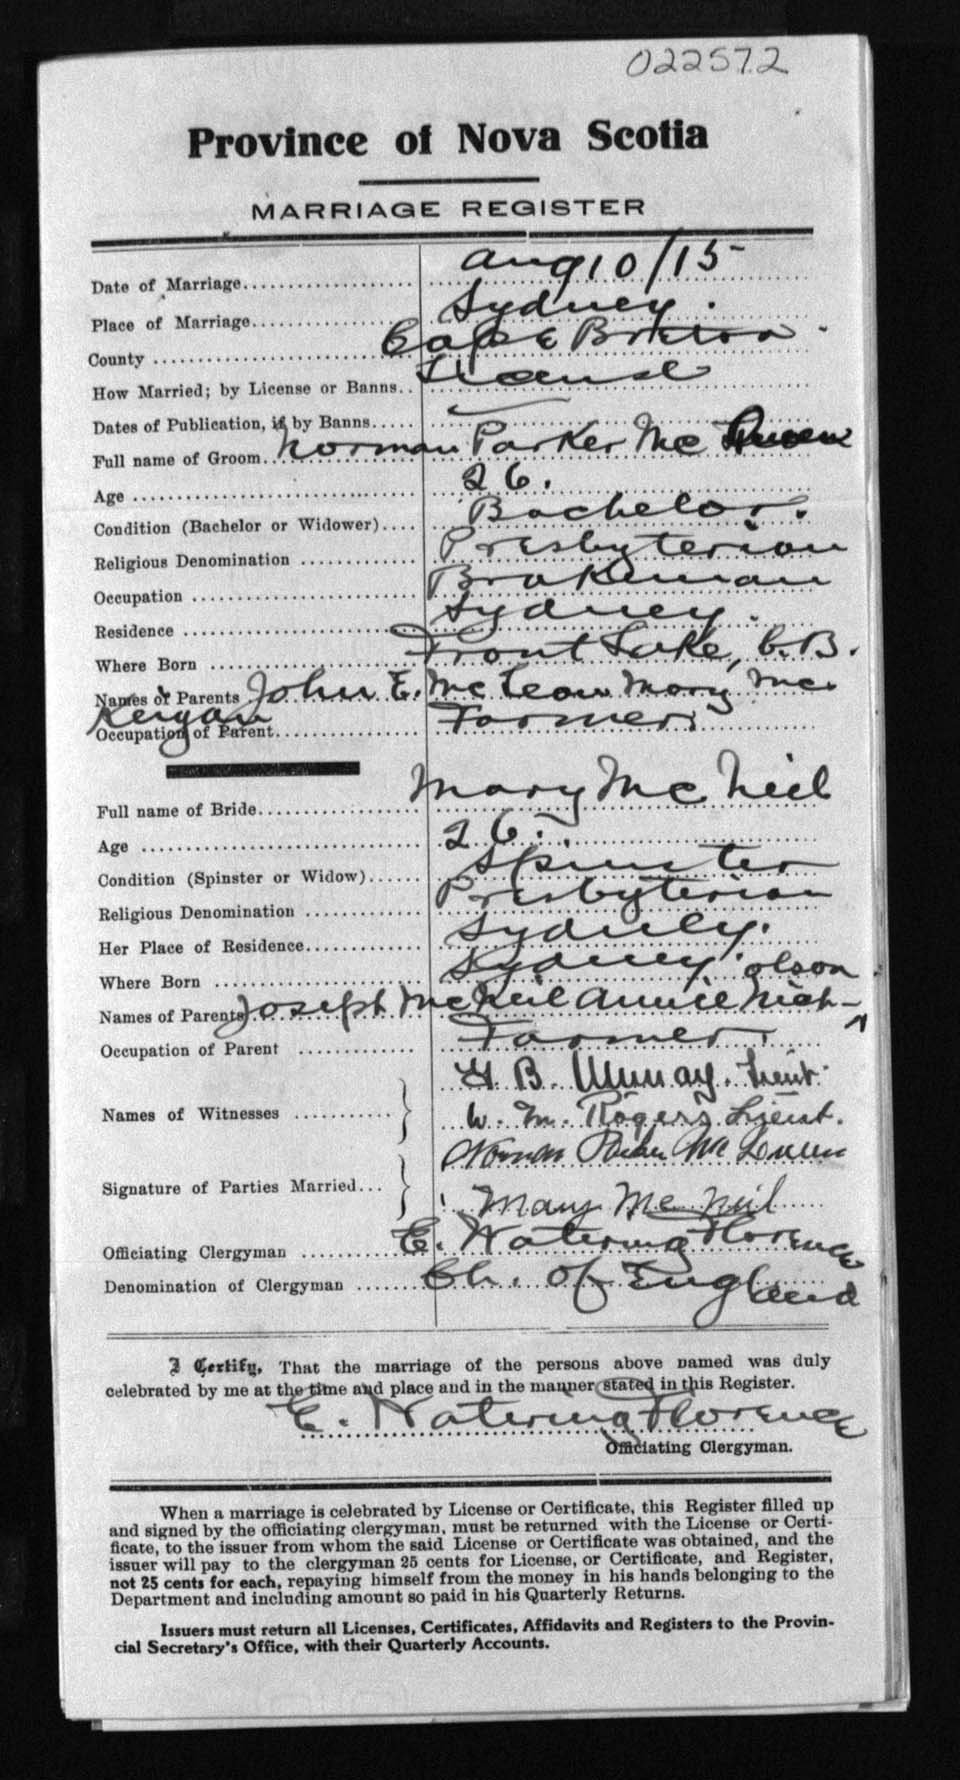 022572
Province of Nova Scotia
MARRIAGE REGISTER
Date of Marriage Aug 10/15
Place of Marriage Sydney.
County Cape Breton
How Married; by License or Banns License
Dates of Publication, if by Banns
Full name of Groom Norman Parker Mc Queen
Age 26.
Condition (Bachelor or Widower) Bachelor.
Religious Denomination Presbyterian
Occupation Brakeman
Residence Sydney.
Where Born Trout Lake, C.B.
Names of Parents John E. McLean Mary Mc
Keigan
Occupation of Parent Farmer
Full name of Bride Mary McNeil
Age 26.
Condition (Spinster or Widow) Spinster
Religious Denomination Presbyterian
Her Place of Residence Sydney.
Where Born Sydney.
Names of Parents Joseph McNeil Annie Nich-olson
Occupation of Parent Farmer.
Names of Witnesses B. Murray. Lieut.
W. M. Rogers Lieut.
Signature of Parties Married Norman Parker Mc
Mary McNeil
Officiating Clergyman E. Watering Florence
Denomination of Clergyman Ch. of England
I Certify, That the marriage of the persons above named was duly
celebrated by me at the time and place and in the manner stated in this Register.
E. Watering Florence
Officiating Clergyman.
When a marriage is celebrated by License or Certificate, this Register filled up
and signed by the officiating clergyman, must be returned with the License or Certi-
ficate, to the issuer from whom the said License or Certificate was obtained, and the
issuer will pay to the clergyman 25 cents for License, or Certificate, and Register,
not 25 cents for each, repaying himself from the money in his hands belonging to the
Department and including amount so paid in his Quarterly Returns.
Issuers must return all Licenses, Certificates, Affidavits and Registers to the Provin-
cial Secretary's Office, with their Quarterly Accounts.